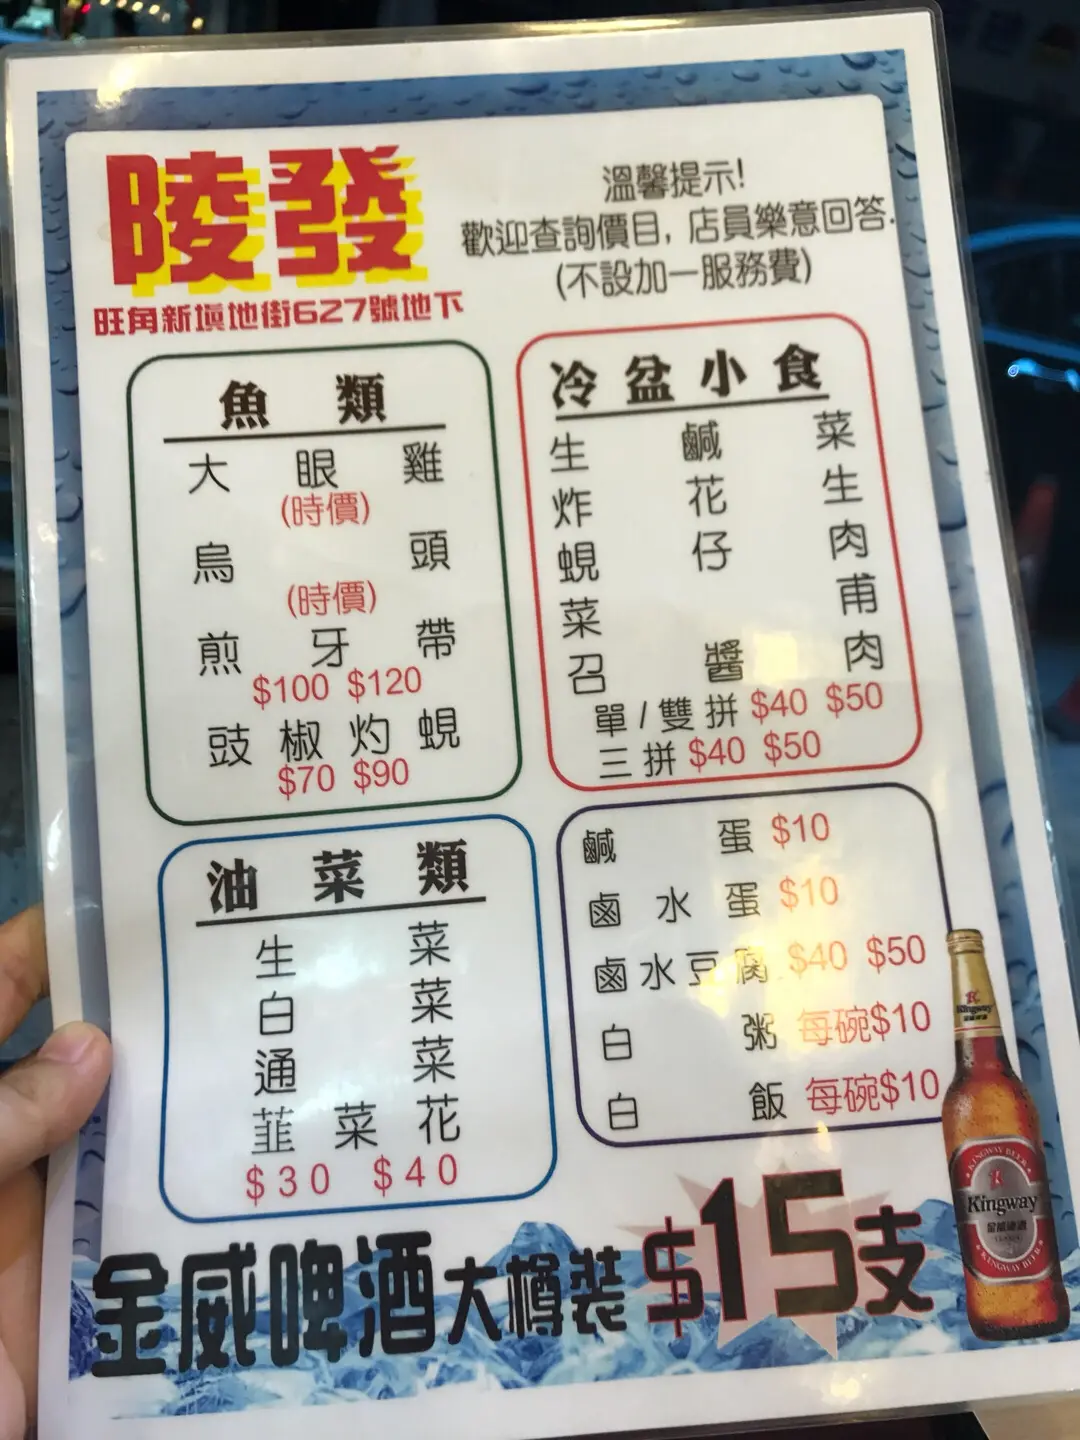 陵發
旺角新填地街627號地下
溫馨提示!
歡迎查詢價目, 店員樂意回答.
(不設加一服務費)
魚類
大眼雞
(時價)
烏頭
(時價)
煎牙帶
$100 $120
豉椒灼蜆
$70 $90
冷盆小食
生鹹菜
炸花生
蜆仔肉
菜甫
召醬肉
單/雙拼 $40 $50
三拼 $40 $50
油菜類
生菜
白菜
通菜
韮菜花
$30 $40
鹹蛋 $10
鹵水蛋 $10
鹵水豆腐 $40 $50
白粥 每碗$10
白飯 每碗$10
金威啤酒大樽裝 $15支
Kingway
金威啤酒
KINGWAY BEER
Kingway
金威啤酒
CLASSIC
KINGWAY BEER